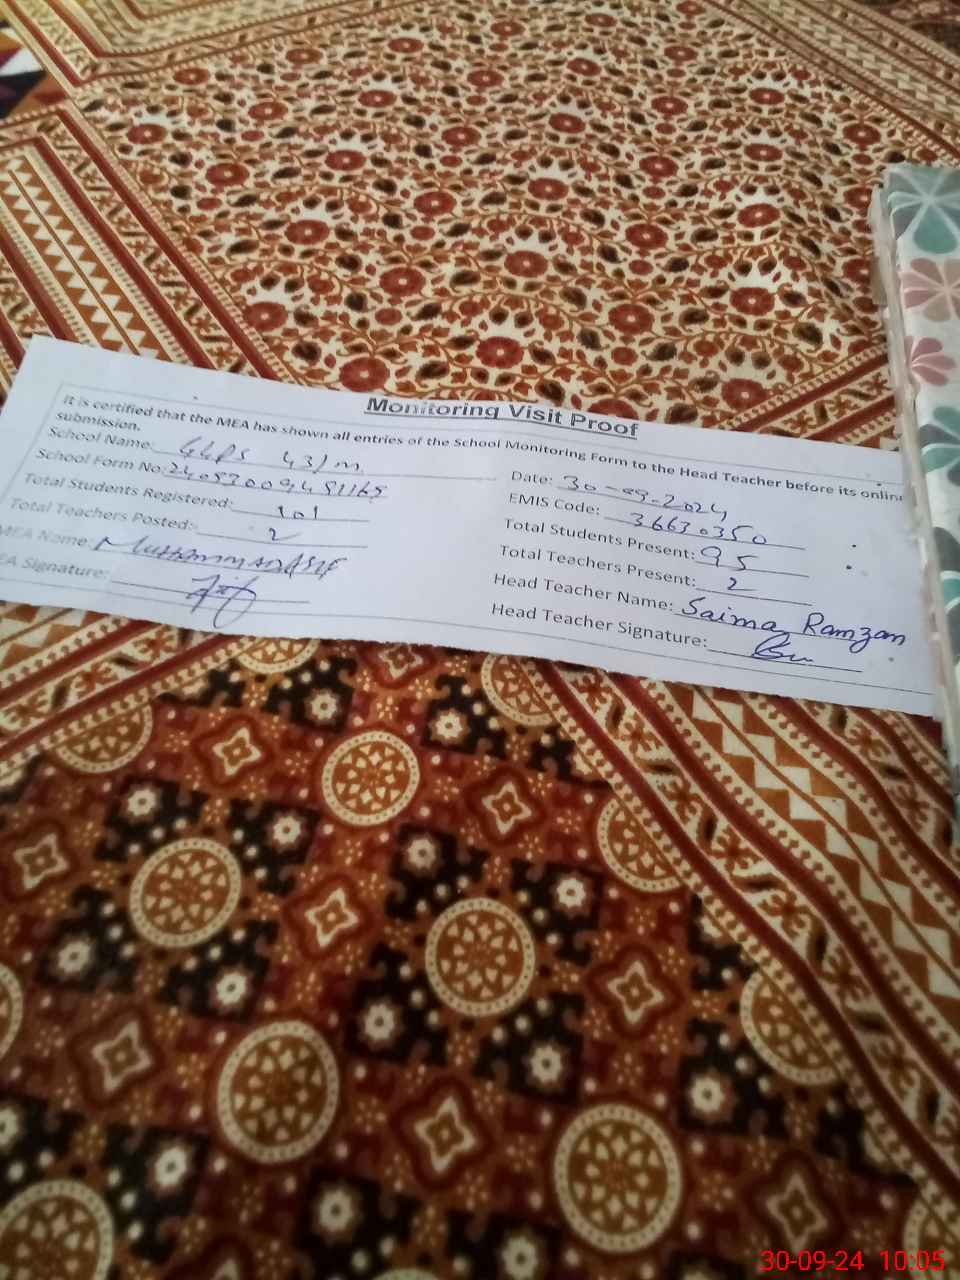 Monitoring Visit Proof
It is certified that the MEA has shown all entries of the School Monitoring Form to the Head Teacher before its online
submission.
School Name: GGPS 43/m
Date: 30-09-2024
School Form No:
EMIS Code: 36630350
Total Students Registered: 101
Total Students Present: 95
Total Teachers Posted: 2
Total Teachers Present: 2
MEA Name: Muhammad Asif
Head Teacher Name: Saima Ramzan
EA Signature:
Head Teacher Signature:
30-09-24 10:05